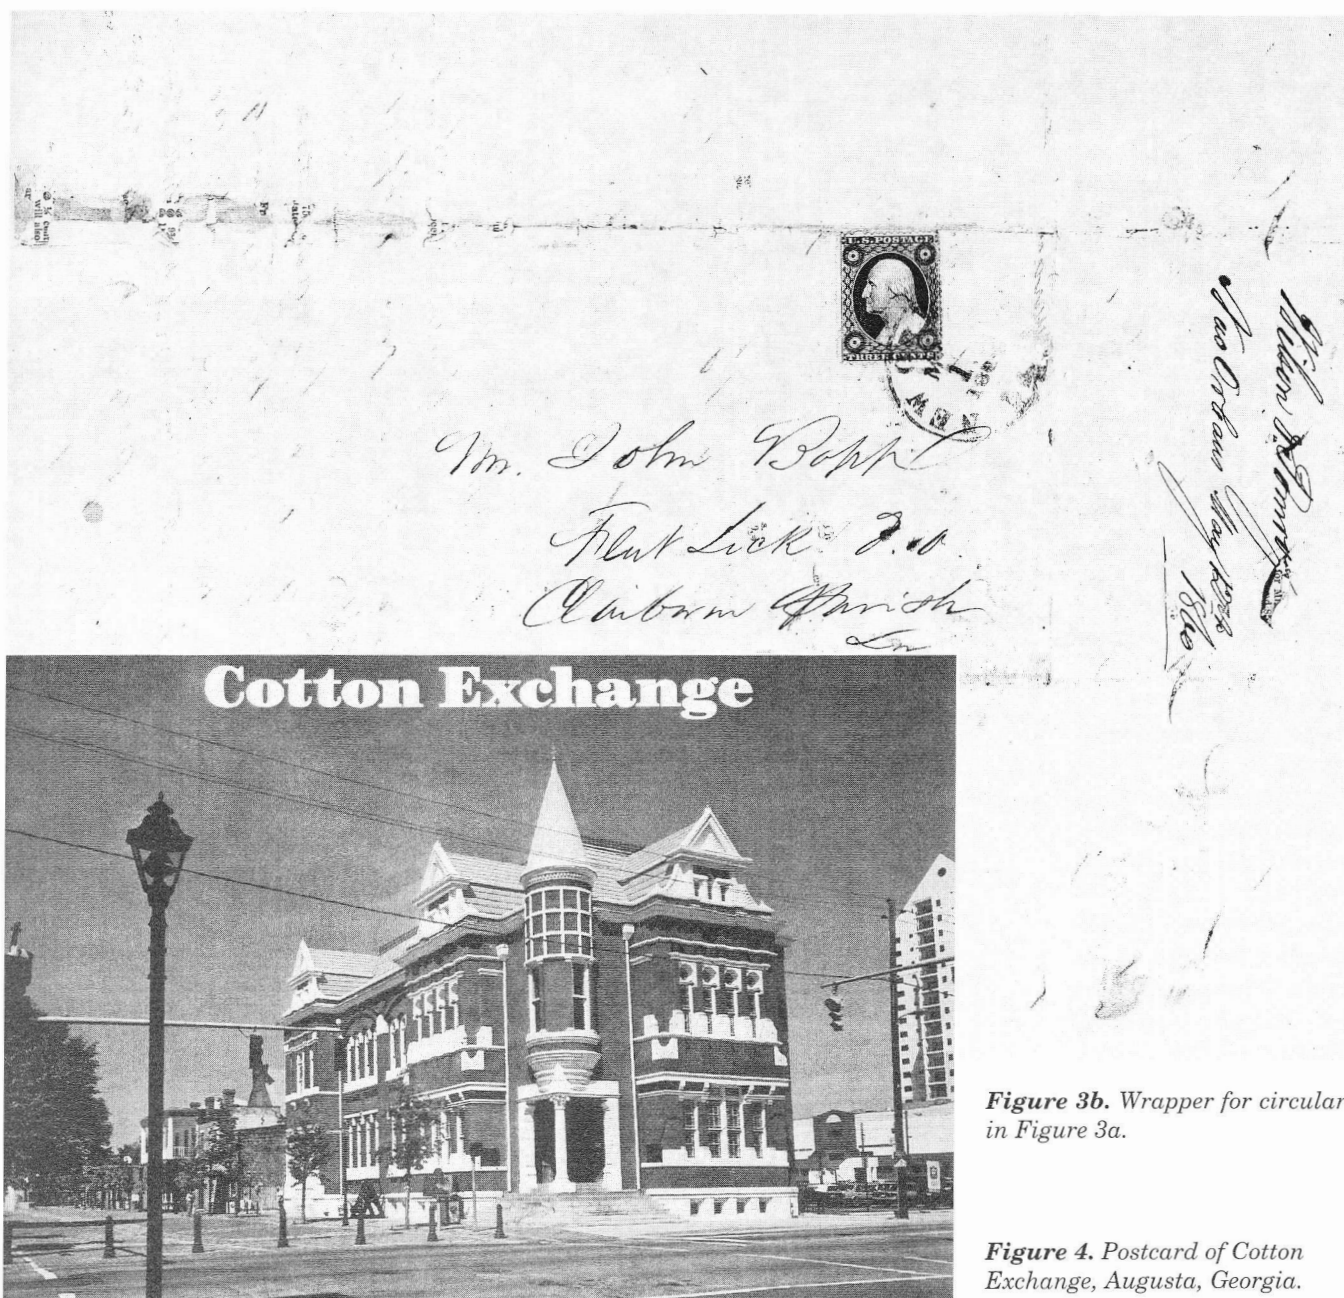 U.S. POSTAGE
THREE CENTS
NEW
Mr. John Bopp
Flat Lick P.O.
Claiborn Parish
La
New Orleans May
1860
Cotton Exchange
Figure 3b. Wrapper for circular
in Figure 3a.
Figure 4. Postcard of Cotton
Exchange, Augusta, Georgia.